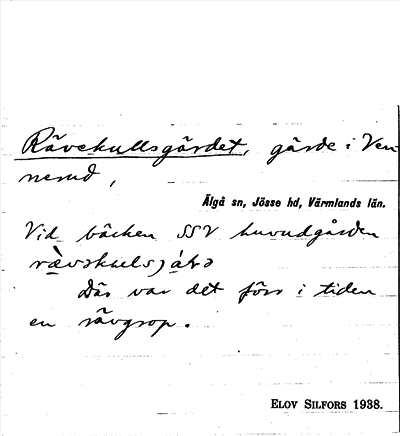 Rävekullsgärdet, gärde i Ven-
nerud,
Älgå sn, Jösse hd, Värmlands län.
Vid bäcken SSV huvudgården
Där var det förr i tiden
en rävgrop.
ELOV SILFORS 1938.